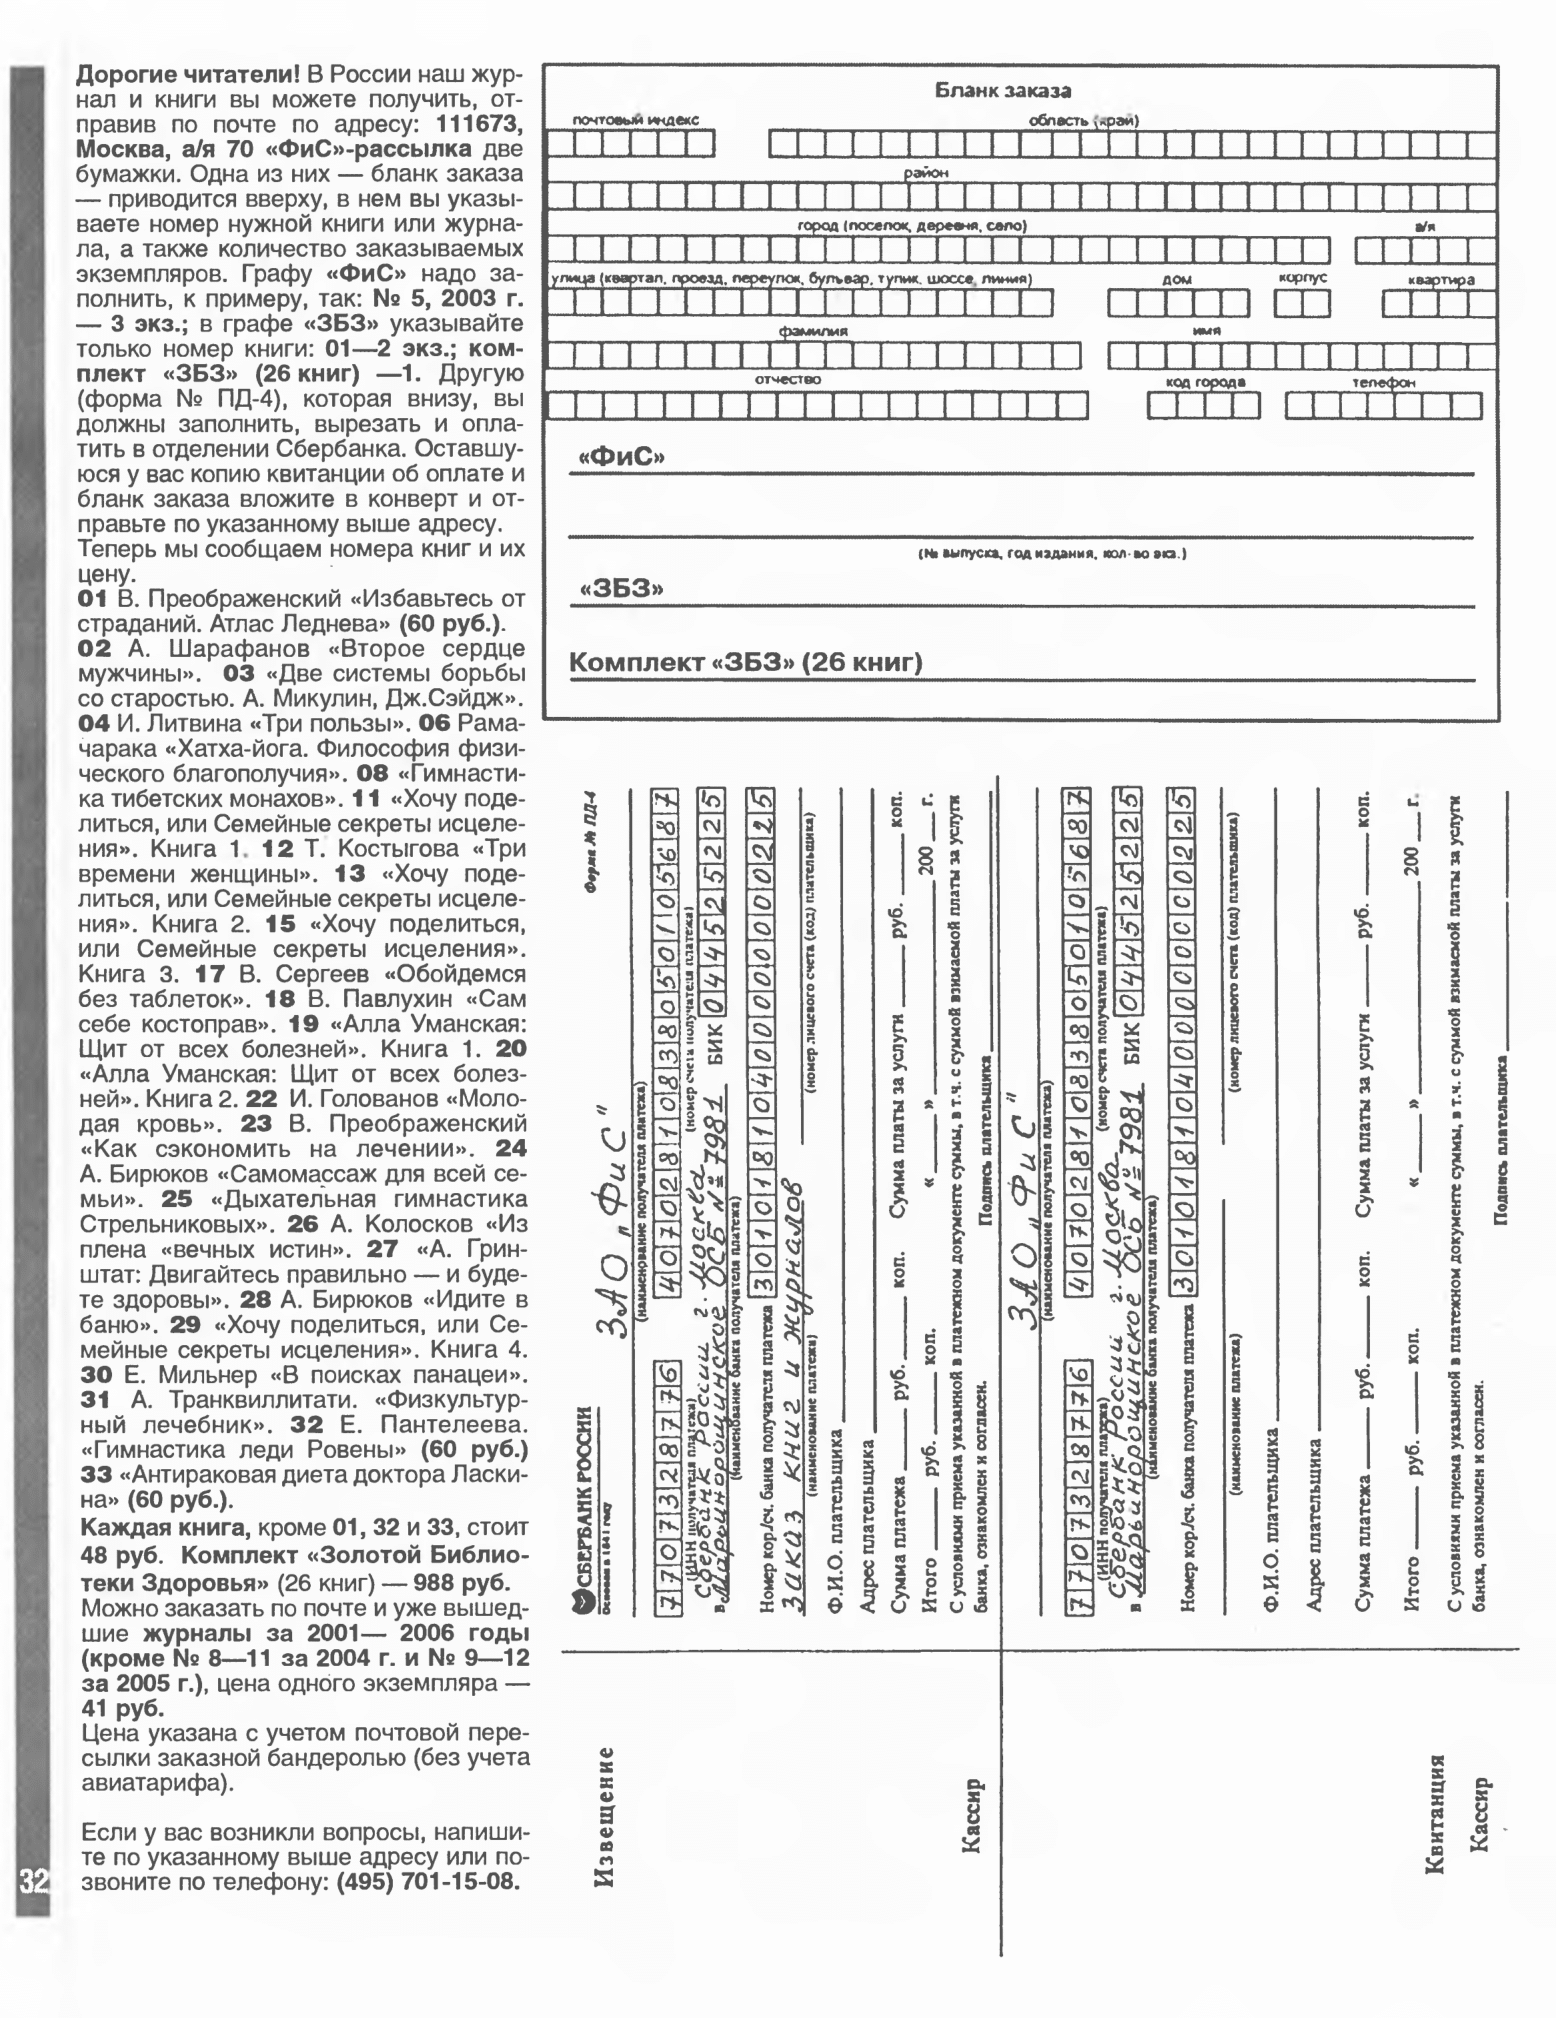 Дорогие читатели! В России наш жур-
нал и книги вы можете получить, от-
правив по почте по адресу: 111673,
Москва, а/я 70 «ФиС»-рассылка две
бумажки. Одна из них — бланк заказа
— приводится вверху, в нем вы указы-
ваете номер нужной книги или журна-
ла, а также количество заказываемых
экземпляров. Графу «ФиС» надо за-
полнить, к примеру, так: № 5, 2003 г.
— 3 экз.; в графе «ЗБЗ» указывайте
только номер книги: 01—2 экз.; ком-
плект «ЗБЗ» (26 книг) —1. Другую
(форма № ПД-4), которая внизу, вы
должны заполнить, вырезать и опла-
тить в отделении Сбербанка. Оставшу-
юся у вас копию квитанции об оплате и
бланк заказа вложите в конверт и от-
правьте по указанному выше адресу.
Теперь мы сообщаем номера книг и их
цену.
01 В. Преображенский «Избавьтесь от
страданий. Атлас Леднева» (60 руб.).
02 А. Шарафанов «Второе сердце
мужчины». 03 «Две системы борьбы
со старостью. А. Микулин, Дж.Сэйдж».
04 И. Литвина «Три пользы». 06 Рама-
чарака «Хатха-йога. Философия физи-
ческого благополучия». 08 «Гимнасти-
ка тибетских монахов». 11 «Хочу поде-
литься, или Семейные секреты исцеле-
ния». Книга 1. 12 Т. Костыгова «Три
времени женщины». 13 «Хочу поде-
литься, или Семейные секреты исцеле-
ния». Книга 2. 15 «Хочу поделиться,
или Семейные секреты исцеления».
Книга 3. 17 В. Сергеев «Обойдемся
без таблеток». 18 В. Павлухин «Сам
себе костоправ». 19 «Алла Уманская:
Щит от всех болезней». Книга 1. 20
«Алла Уманская: Щит от всех болез-
ней». Книга 2. 22 И. Голованов «Моло-
дая кровь». 23 В. Преображенский
«Как сэкономить на лечении». 24
А. Бирюков «Самомассаж для всей се-
мьи». 25 «Дыхательная гимнастика
Стрельниковых». 26 А. Колосков «Из
плена «вечных истин». 27 «А. Грин-
штат: Двигайтесь правильно — и буде-
те здоровы». 28 А. Бирюков «Идите в
баню». 29 «Хочу поделиться, или Се-
мейные секреты исцеления». Книга 4.
30 Е. Мильнер «В поисках панацеи».
31 А. Транквиллитати. «Физкультур-
ный лечебник». 32 Е. Пантелеева.
«Гимнастика леди Ровены» (60 руб.)
33 «Антираковая диета доктора Ласки-
на» (60 руб.).
Каждая книга, кроме 01, 32 и 33, стоит
48 руб. Комплект «Золотой Библио-
теки Здоровья» (26 книг) — 988 руб.
Можно заказать по почте и уже вышед-
шие журналы за 2001— 2006 годы
(кроме № 8—11 за 2004 г. и № 9—12
за 2005 г.), цена одного экземпляра —
41 руб.
Цена указана с учетом почтовой пере-
сылки заказной бандеролью (без учета
авиатарифа).
Если у вас возникли вопросы, напиши-
те по указанному выше адресу или по-
звоните по телефону: (495) 701-15-08.
32
Бланк заказа
почтовый индекс область (край)
район
город (поселок, деревня, село) а/я
улица (квартал, проезд, переулок, бульвар, тупик, шоссе, линия) дом корпус квартира
фамилия имя
отчество код города телефон
«ФиС»
(№ выпуска, год издания, кол-во экз.)
«ЗБЗ»
Комплект «ЗБЗ» (26 книг)
Извещение
Кассир
СБЕРБАНК РОССИИ
Основан в 1841 году
Форма № ПД-4
ЗАО „ФиС"
(наименование получателя платежа)
7707328776 40702810838050105687
(ИНН получателя платежа) (номер счета получателя платежа)
Сбербанк России г. Москва
в Марьинорощинское ОСБ № 7981 БИК 044525225
(наименование банка получателя платежа)
Номер кор./сч. банка получателя платежа 30101810400000000225
Заказ книг и журналов
(наименование платежа) (номер лицевого счета (код) плательщика)
Ф.И.О. плательщика
Адрес плательщика
Сумма платежа руб. коп. Сумма платы за услуги руб. коп.
Итого руб. коп. « » 200 г.
С условиями приема указанной в платежном документе суммы, в т.ч. с суммой взимаемой платы за услуги
банка, ознакомлен и согласен. Подпись плательщика
Квитанция
Кассир
ЗАО „ФиС"
(наименование получателя платежа)
7707328776 40702810838050105687
(ИНН получателя платежа) (номер счета получателя платежа)
Сбербанк России г. Москва
в Марьинорощинское ОСБ № 7981 БИК 044525225
(наименование банка получателя платежа)
Номер кор./сч. банка получателя платежа 30101810400000000225
(наименование платежа) (номер лицевого счета (код) плательщика)
Ф.И.О. плательщика
Адрес плательщика
Сумма платежа руб. коп. Сумма платы за услуги руб. коп.
Итого руб. коп. « » 200 г.
С условиями приема указанной в платежном документе суммы, в т.ч. с суммой взимаемой платы за услуги
банка, ознакомлен и согласен. Подпись плательщика